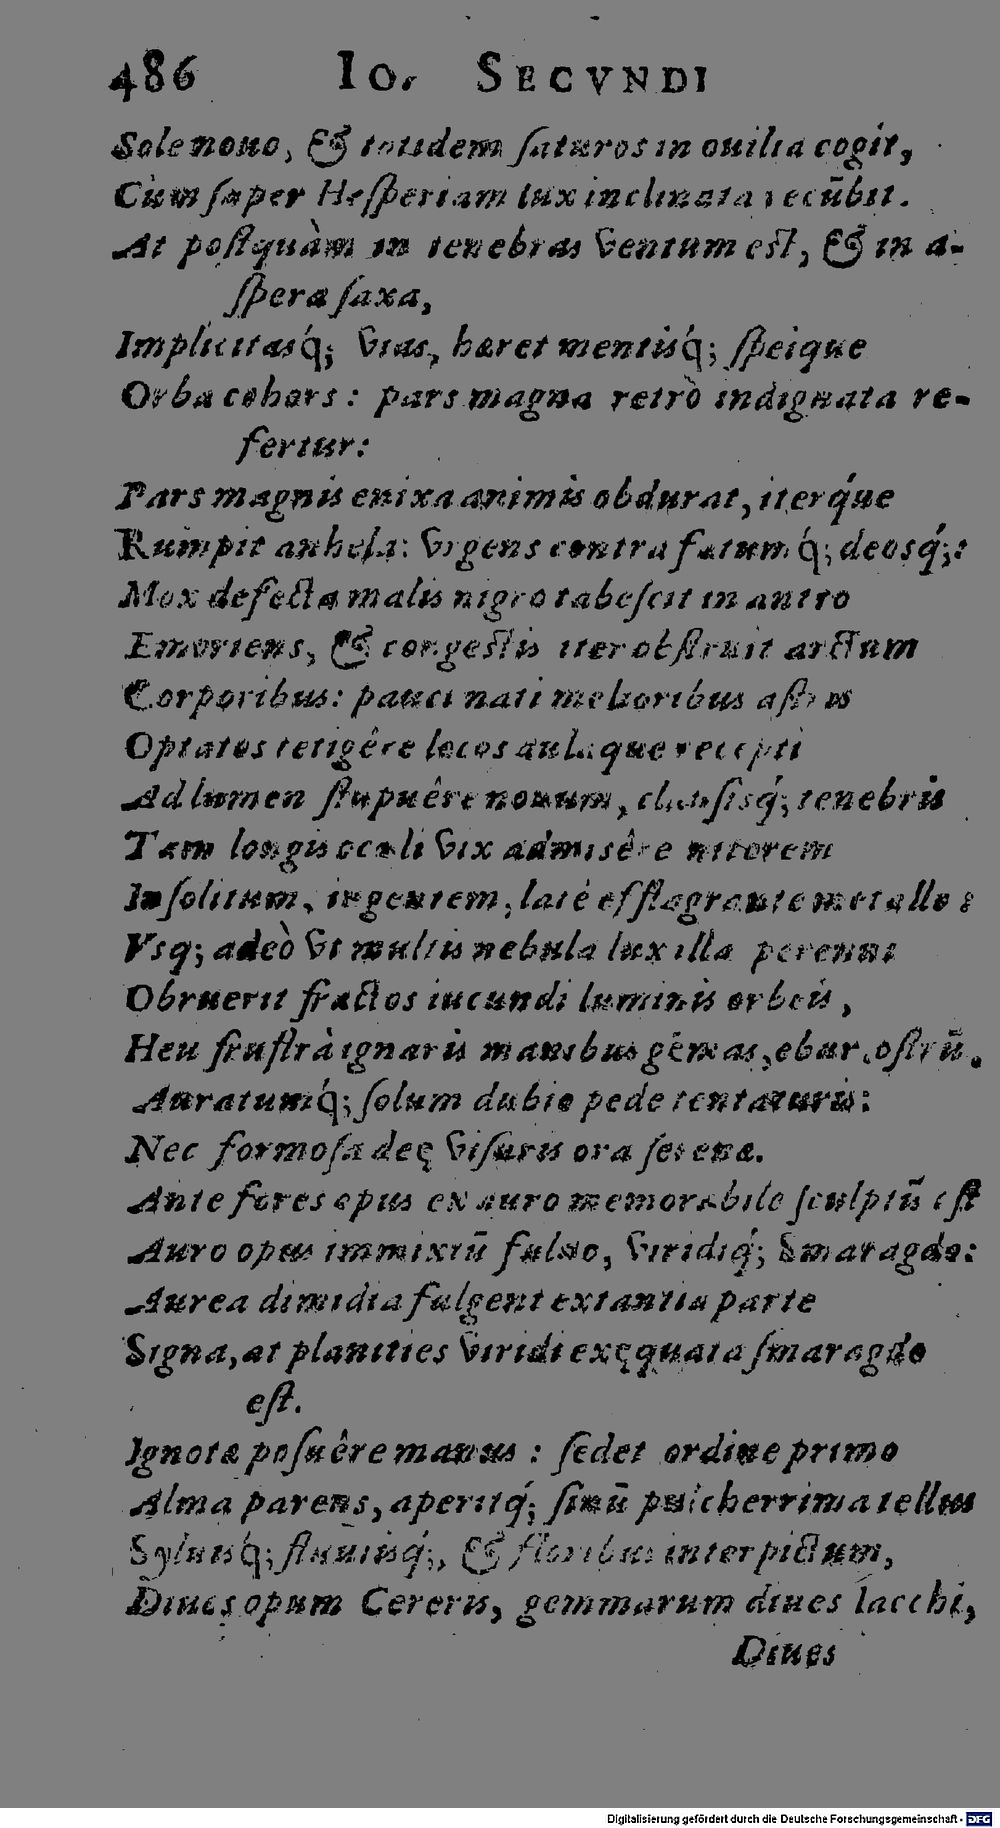 486 Io. SECVNDI
Sole nouo, & totidem ſaturos in ouilia cogit,
Cùm ſuper Heſperiam lux inclinata recũbit.
At poſtquàm in tenebras ventum eſt, & in a-
ſpera ſaxa,
Implicitasq́; vias, hæret mentisq́; ſpeique
Orba cohors: pars magna retrò indignata re-
fertur:
Pars magnis enixa animis obdurat, iterq́ue
Rumpit anhela: vrgens contra fatumq́; deosq́;:
Mox defecta malis nigro tabeſcit in antro
Emoriens, & congeſtis iter obſtruit arctum
Corporibus: pauci nati melioribus aſtris
Optatos tetigêre locos aulaque recepti
Ad lumen ſtupuêre nouum, clausiſq́; tenebris
Tam longis oculi vix admisêre nitorem
Inſolitum, ingentem, latè efflagrante metallo:
Vsq; adeò vt multis nebula lux illa perenni
Obruerit fractos iucundi luminis orbeis,
Heu fruſtrà ignaris manibus gẽmas, ebur, oſtrũ,
Auratumq́; ſolum dubio pede tentaturis:
Nec formoſa deę viſuris ora ſerenæ.
Ante fores opus ex auro memorabile ſculptũ eſt
Auro opus immixtũ fuluo, viridiq́; Smaragdo:
Aurea dimidia fulgent extantia parte
Signa, at planities viridi exęquata ſmaragdo
eſt.
Ignotæ poſuêre manus: ſedet ordine primo
Alma parens, aperitq́; ſinũ pulcherrima tellus
Syluisq́; fluuiisq́;, & floribus interpictum,
Diues opum Cereris, gemmarum diues Iacchi,
Diues
Digitalisierung gefördert durch die Deutsche Forschungsgemeinschaft - DFG